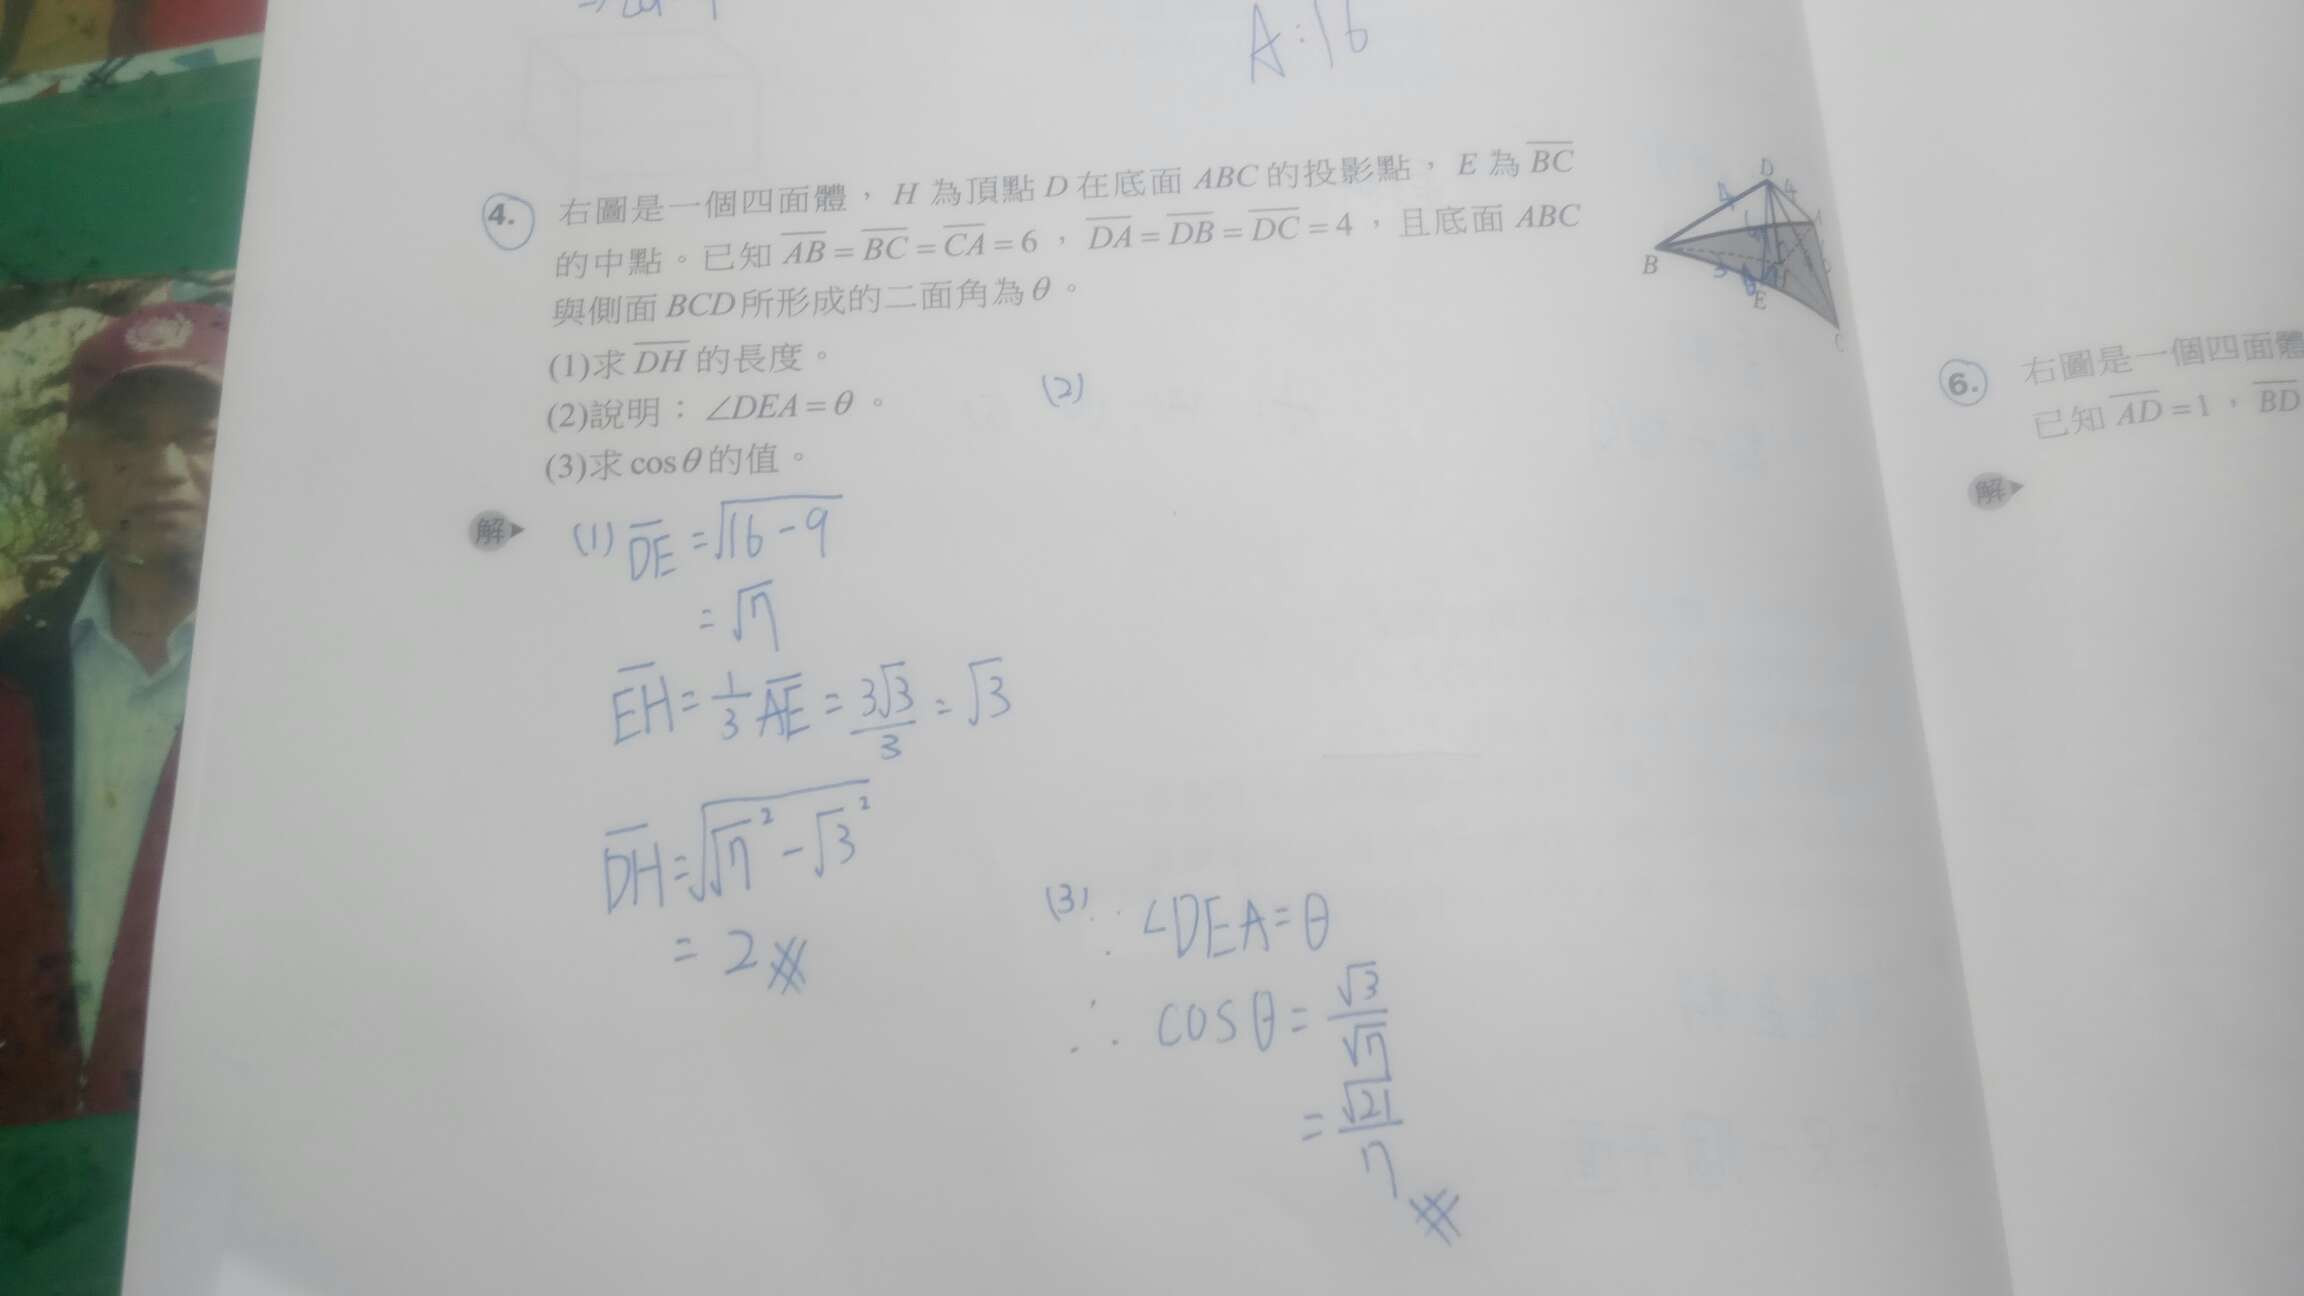 A:16
4. 右圖是一個四面體，H 為頂點 D 在底面 ABC 的投影點，E 為 BC
的中點。已知 AB = BC = CA = 6，DA = DB = DC = 4，且底面 ABC
與側面 BCD 所形成的二面角為 θ。
(1)求 DH 的長度。
(2)說明：∠DEA = θ。
(3)求 cosθ 的值。
D
4
4
A
B
3
E
C
解
(1) DE = √16-9
= √7
EH = 1/3 AE = 3√3/3 = √3
DH = √(√7² - √3²)
= 2
(2)
(3) ∵ ∠DEA = θ
∴ cosθ = √3/√7
= √21/7
6. 右圖是一個四面體
已知 AD = 1，BD
解